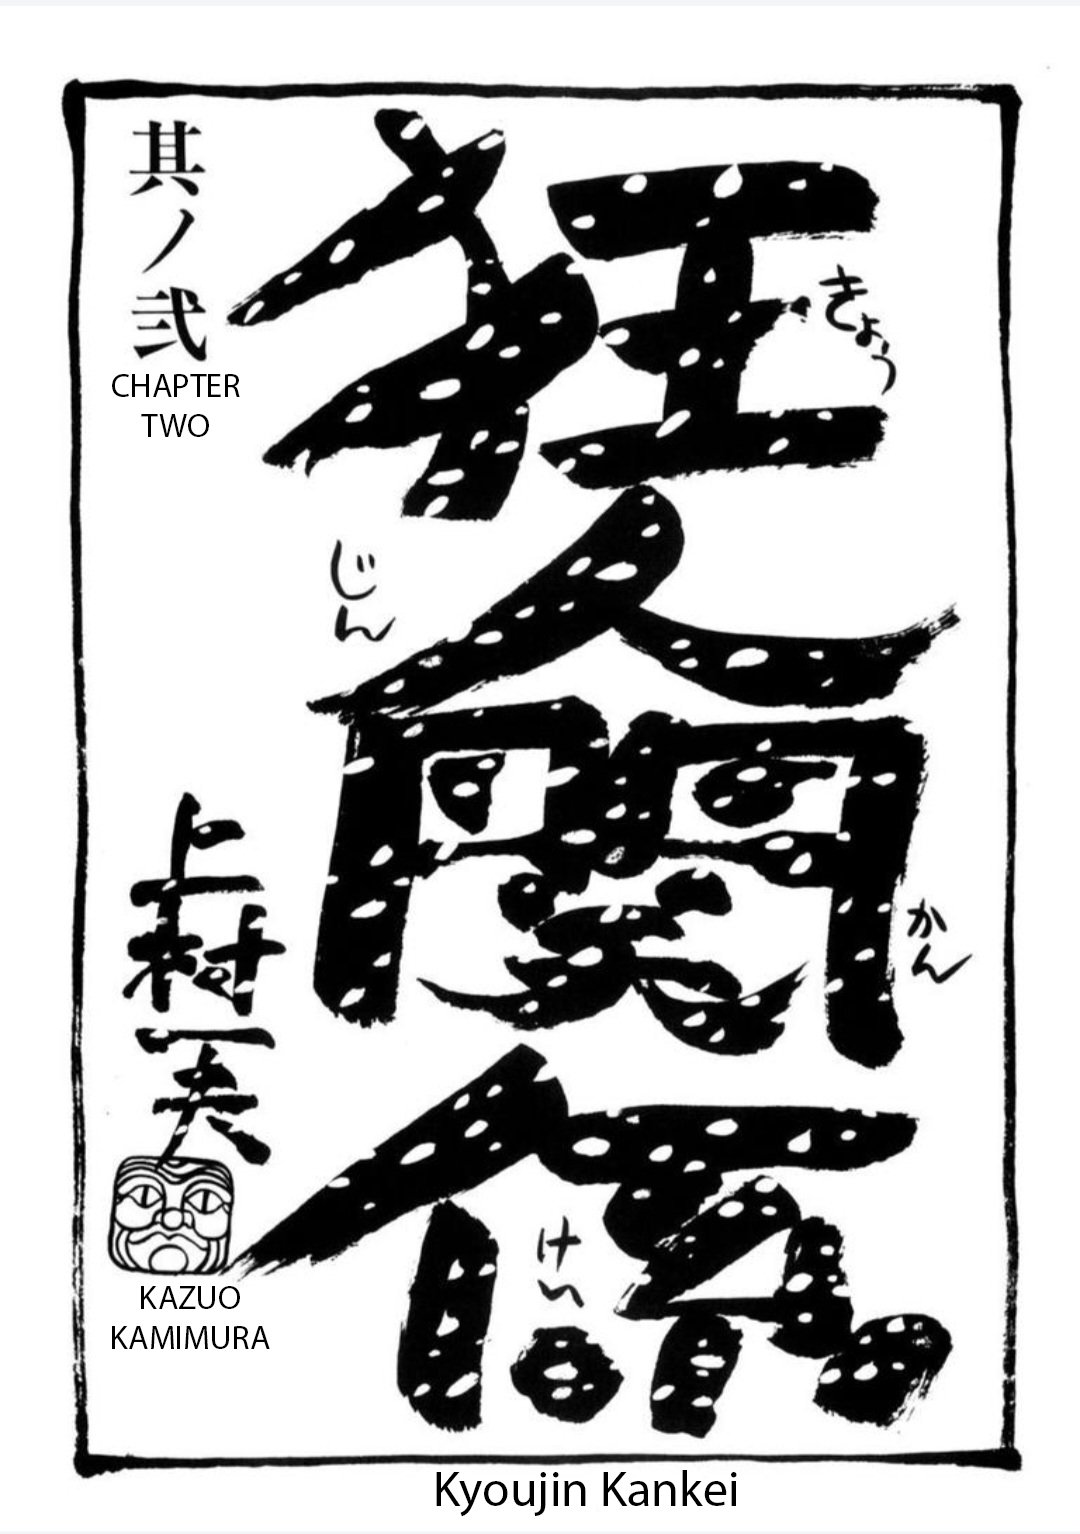 其ノ弐
CHAPTER
TWO
狂人関係
きょう
じん
かん
けい
上村一夫
KAZUO
KAMIMURA
Kyoujin Kankei